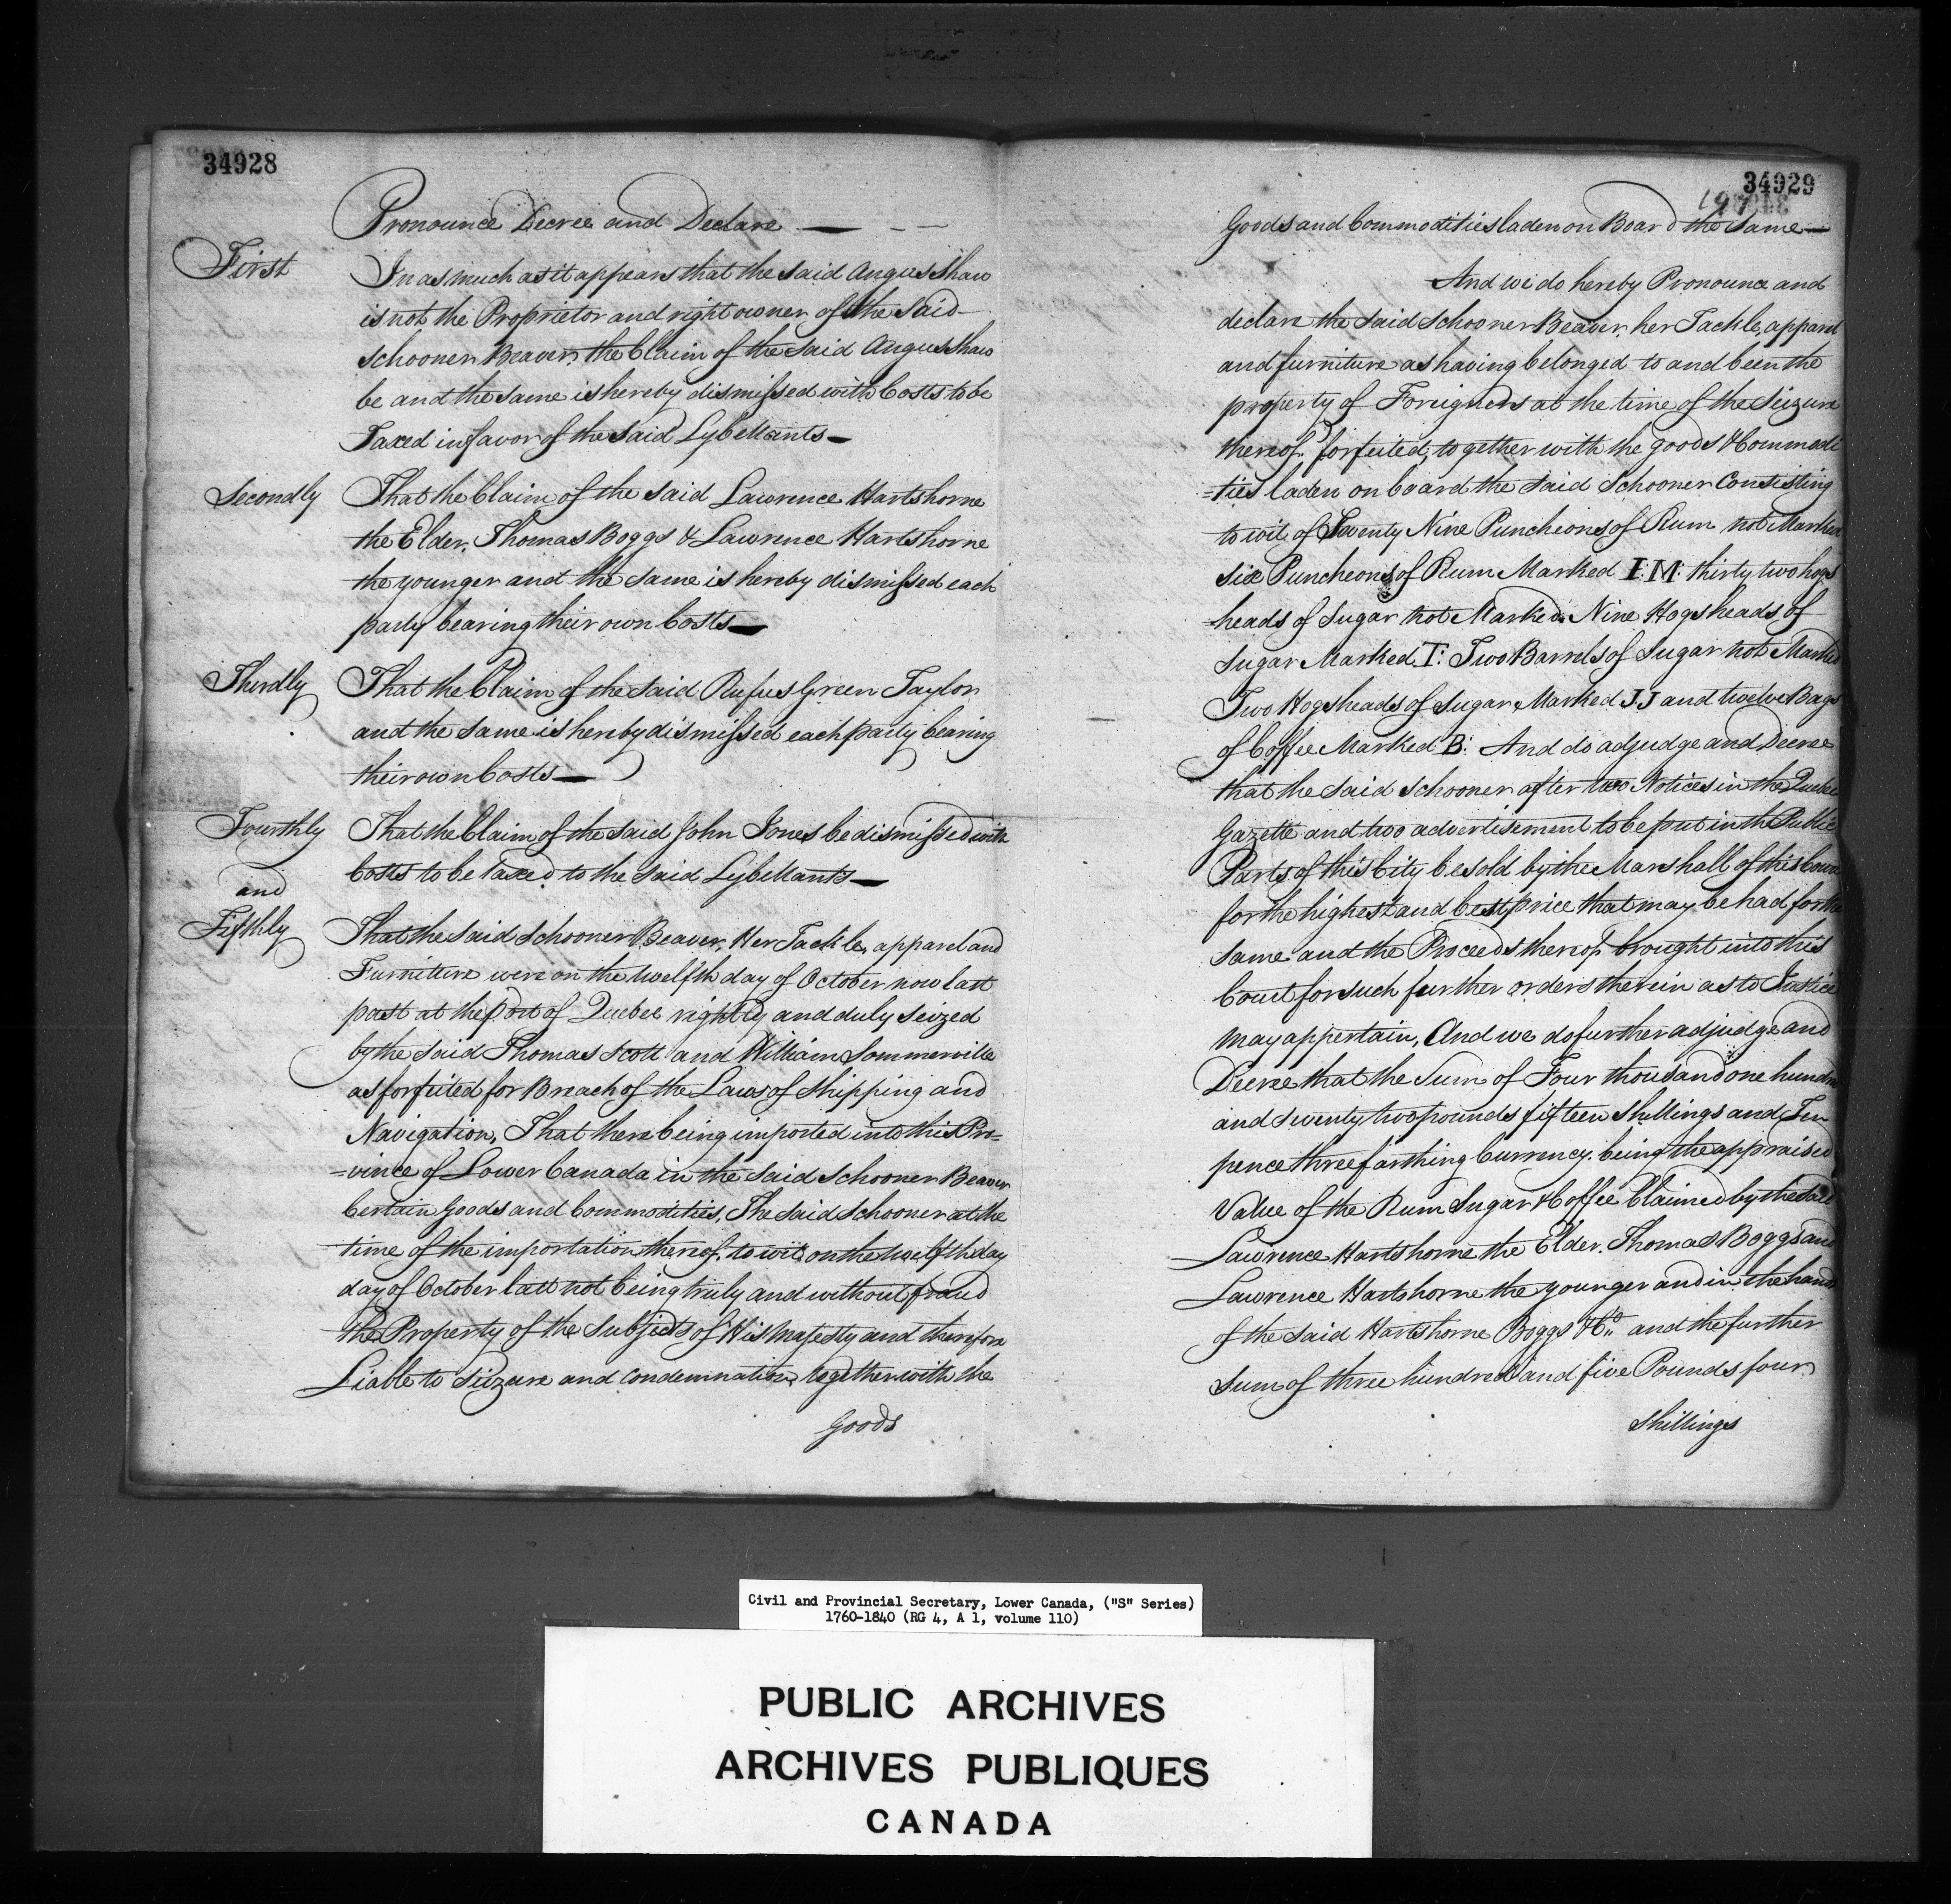 34928
Pronounce Decree and Declare — — —
First
In as much as it appears that the said Angus Shaw
is not the Proprietor and right owner of the Said
Schooner Beaver, the Claim of the said Angus Shaw
be and the same is hereby dismissed with Costs to be
Taxed in favor of the said Lybellants —
Secondly
That the Claim of the said Lawrence Hartshorne
the Elder, Thomas Boggs & Lawrence Hartshorne
the younger and the same is hereby dismissed each
party bearing their own Costs —
Thirdly
That the Claim of the said Rufus Green Taylor
and the same is hereby dismissed each party bearing
their own Costs —
Fourthly
That the Claim of the said John Jones be dismissed with
Costs to be taxed to the said Lybellants —
and
Fifthly
That the said Schooner Beaver, Her Tackle, apparel and
Furniture were on the twelfth day of October now last
past at the port of Quebec rightly and duly seized
by the said Thomas Scott and William Sommerville
as forfeited for Breach of the Laws of Shipping and
Navigation, That there being imported into this Pro=
=vince of Lower Canada in the said Schooner Beaver
Certain Goods and Commodities, The said Schooner at the
time of the importation thereof, to wit on the twelfth day
day of October last not being truly and without fraud
the Property of the Subjects of His Majesty and therefore
Liable to Seizure and Condemnation, together with the
Goods
34929
197
Goods and Commodities laden on Board the Same —
And we do hereby Pronounce and
declare the said Schooner Beaver, her Tackle, apparel
and furniture as having belonged to and been the
property of Foreigners at the time of the Seizure
thereof forfeited, together with the goods & Commodi
=ties laden on board the said Schooner Consisting
to wit, of Twenty Nine Puncheons of Rum not Marked
six Puncheons of Rum Marked I:M: thirty two hogs
=heads of Sugar not Marked, Nine Hogsheads of
Sugar Marked I: Two Barrels of Sugar not Marked
Two Hogsheads of Sugar Marked J.J and twelve Bags
of Coffee Marked B: And do adjudge and Decree
that the said Schooner after two Notices in the Quebec
Gazette and two advertisement to be put in the Public
Parts of this City be sold by the Marshall of this Court
for the highest and best price that may be had for the
same and the Proceeds thereof brought into this
Court for such further orders therein as to Justice
may appertain, And we do further adjudge and
Decree that the Sum of Four thousand one hundred
and twenty two pounds fifteen Shillings and Ten
pence three farthing Currency, being the appraised
Value of the Rum Sugar & Coffee Claimed by the said
Lawrence Hartshorne the Elder, Thomas Boggs and
Lawrence Hartshorne the younger and in the hands
of the said Hartshorne Boggs & Co. and the further
Sum of three hundred and five Pounds four
Shillings
Civil and Provincial Secretary, Lower Canada, ("S" Series)
1760-1840 (RG 4, A 1, volume 110)
PUBLIC ARCHIVES
ARCHIVES PUBLIQUES
CANADA